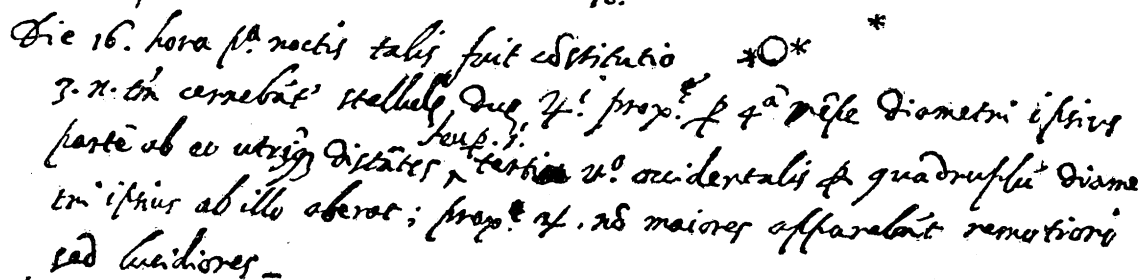 Die 16. hora pª. noctis talis fuit cõstitutio *O* *
3. n. tm̃ cernebãt' stellulę, duę ♃.i prox.ę p 4ã ipsius diametri ipsius
partẽ ab eo utrĩq3 distãtes, tertia v.º occidentalis p quadruplũ diame
tri ipsius ab illo aberat; prox.ę ♃. nõ maiores apparebãt remotiori
sed lucidiores_